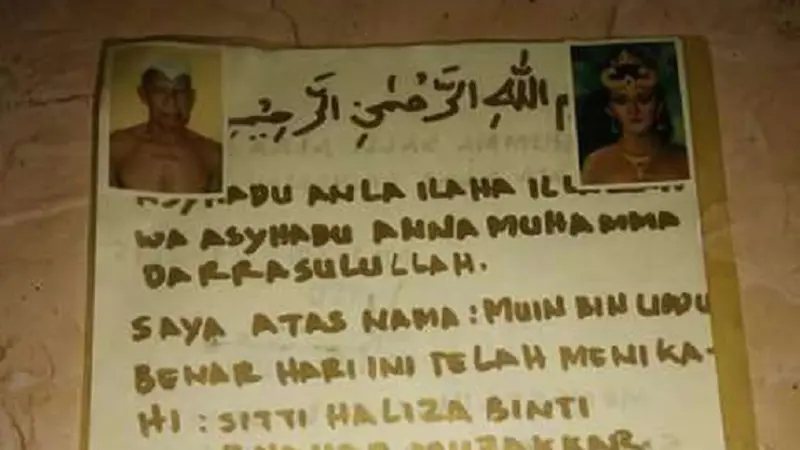 اللهِ الرَّحْمٰنِ الرَّحِيْمِ
ASYHADU ANLA ILAHA
WA ASYHADU ANNA MUHAMMA
DARRASULULLAH.
SAYA ATAS NAMA : MUIN BIN
BENAR HARI INI TELAH MENIKA-
HI : SITTI HALIZA BINTI
MUZAKKAR